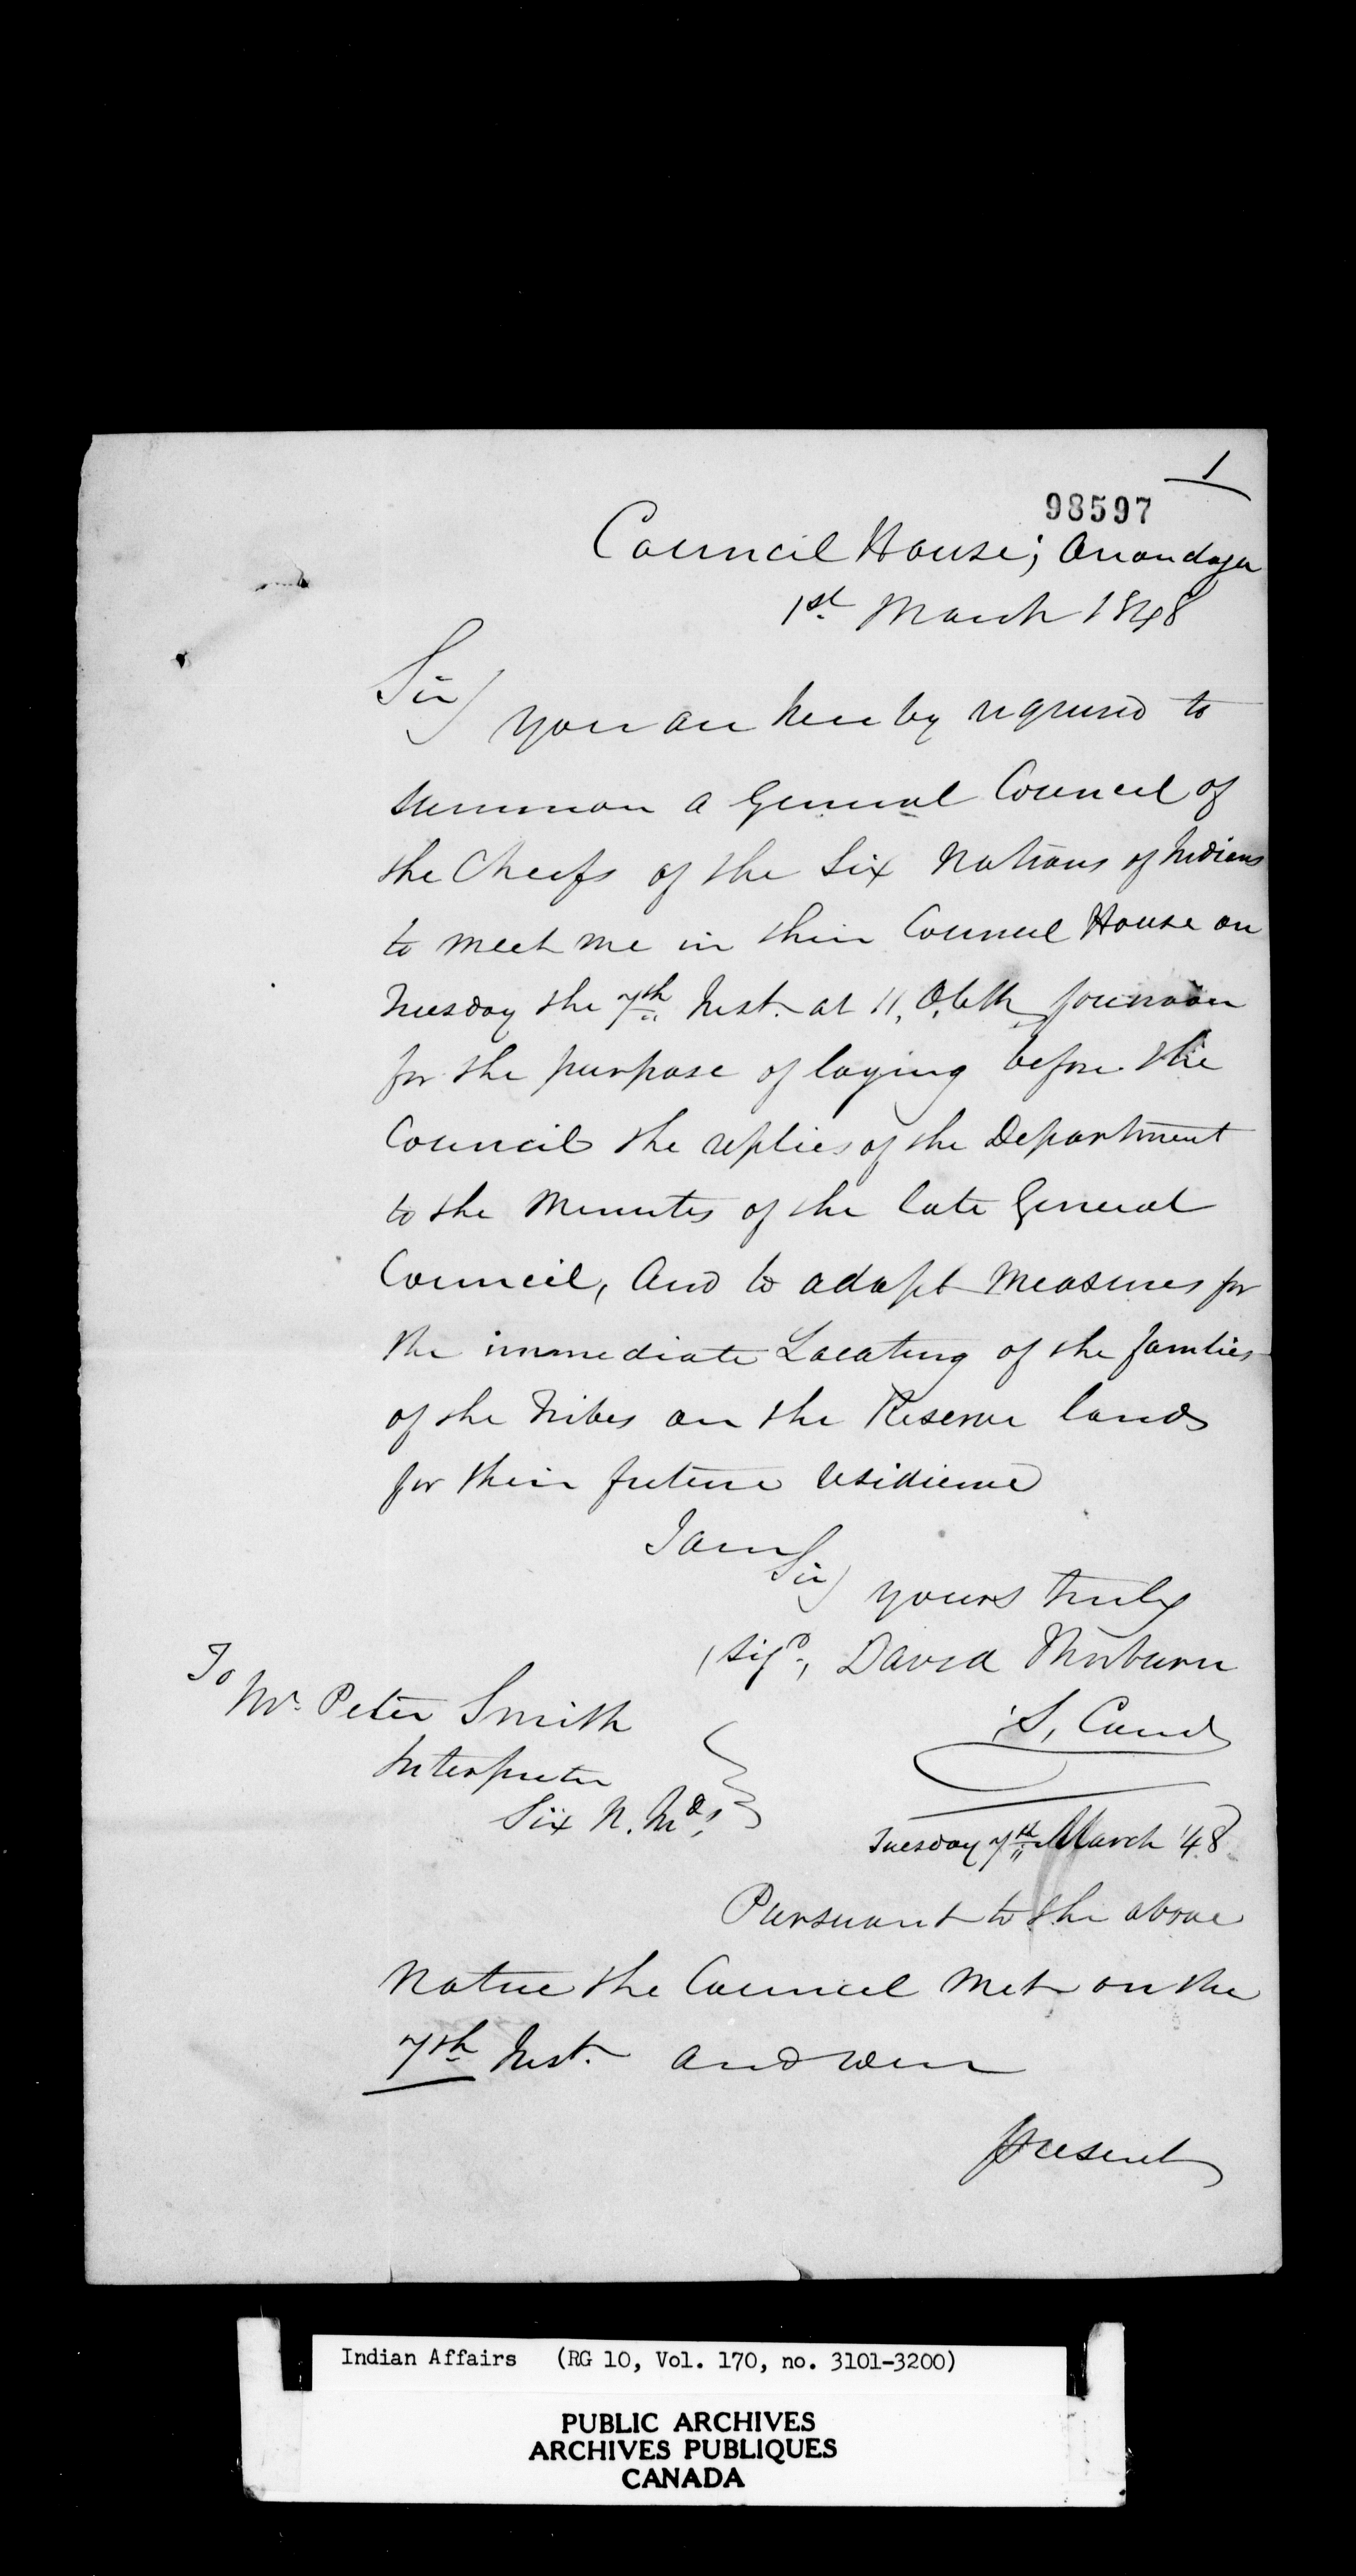 1
98597
Council House; Onondaga
1st March 1848
Sir
you are hereby required to
summon a General Council of
the Cheifs of the Six Nations of Indians
to meet me in their Council House on
Tuesday the 7th Inst. at 11, O,Clk forenoon
for the purpose of laying before the
Council the replies of the Department
to the Minutes of the late General
Council, and to adopt measures for
the immediate Locating of the families
of the Tribes on the Reserve lands
for their future residience
I am Sir
yours truly
(Sigd, David Thorburn
S, Comd
To
Mr. Peter Smith
Interpreter
Six N. Inds,
Tuesday 7th March '48
Pursuant to the above
Notice the Council met on the
7th Inst. and were
present
Indian Affairs (RG 10, Vol. 170, no. 3101-3200)
PUBLIC ARCHIVES
ARCHIVES PUBLIQUES
CANADA